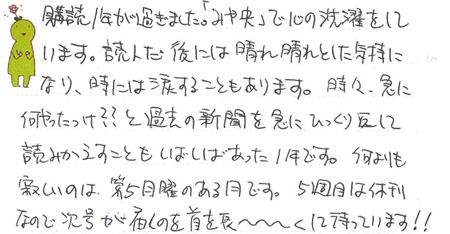 購読1年が過ぎました。「みや央」で心の洗濯をして
います。読んだ後には晴れ晴れとした気持に
なり、時には涙することもあります。時々、急に
何やったっけ??と過去の新聞を急にひっくり返して
読みかえすこともしばしばあった1年です。何よりも
寂しいのは、第5日曜のある月です。5週目は休刊
なので次号が届くのを首を長〜〜〜くして待っています!!